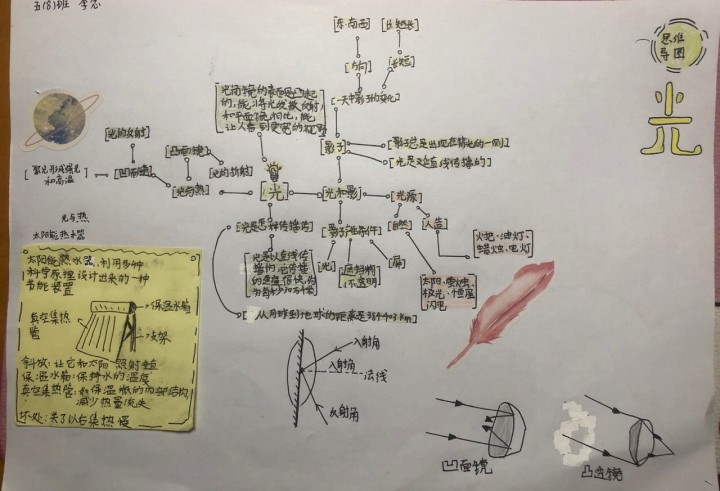 五(8)班 李
思维
导图
光
[东·南西]
[长短长]
[方向]
[长短]
[一天中影子的变化]
能让人看到更宽的视野
[影子]
[影子总是出现在背光的一侧]
[光是以直线传播的]
[光的反射]
[凸面镜]
[聚光形成强光
和高温]
[凹面镜]
[光的折射]
[光与热]
[光]
[光和影]
[光源]
[光是怎样传播得]
[影子产生条件]
[自然]
[人造]
火把·油灯·
蜡烛·电灯
光是以直线传
播的,它传播
的速度很快,约
为每秒30万千米
[光]
[遮挡物
(不透明]
[屏]
太阳·萤火虫·
极光·恒星
闪电
从月球到地球的距离是384403km]
光与热
太阳能热水器
太阳能热水器,利用多种
科学原理设计出来的一种
节能装置
保温水箱
真空集热
管
支架
斜放:让它和太阳照射垂直
保温水箱:保持水的温度
真空集热管:如保温瓶的内部结构,
减少热量流失
坏处:关了以后集热慢
入射角
入射角
法线
反射角
凹面镜
凸透镜